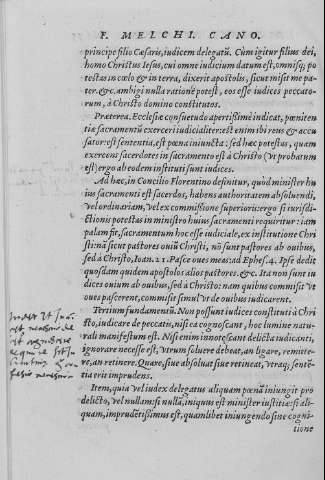 F. MELCHI. CANO.
principe filio Cæsaris, iudicem delegatū. Cum igitur filius dei,
homo Christus Iesus, cui omne iudicium datum est, omnisq; po
testas in cœlo & in terra, dixerit apostolis, sicut misit me pa-
ter. &c. ambigi nulla ratione potest, eos esse iudices peccato-
rum, à Christo domino constitutos.
Præterea. Ecclesiæ consuetudo apertißimè indicat, pœniten
tiæ sacramentū exerceri iudicialiter: est enim ibi reus & accu
sator: est sententia, est pœna iniuncta: sed hæc potestas, quam
exercens sacerdotes in sacramento est à Christo (vt probatum
est) ergo ab eodem instituti sunt iudices.
Ad hæc, in Concilio Florentino definitur, quòd minister hu
ius sacramenti est sacerdos, habens authoritatem absoluendi,
vel ordinariam, vel ex commißione superioris: ergo si iurisdi-
ctionis potestas in ministro huius sacramenti requiritur: iam
palam fit, sacramentum hoc esse iudiciale, ex institutione Chri
sti: nā sicut pastores ouiū Christi, nō sunt pastores ab ouibus,
sed à Christo, Ioan. 21. Pasce oues meas: ad Ephes. 4. Ipse dedit
quosdam quidem apostolos alios pastores. &c. Ita non sunt iu
dices ouium ab ouibus, sed à Christo: nam quibus commisit vt
oues pascerent, commisit simul vt de ouibus iudicarent.
Tertium fundamentū. Non possunt iudices constituti à Chri
sto, iudicare de peccatis, nisi ea cognoscant, hoc lumine natu-
rali manifestum est. Nisi enim innotescant delicta iudicanti,
ignorare necesse est, vtrum soluere debeat, an ligare, remitte-
re, an retinere. Quare, siue absoluat siue retineat, vtraq; senten-
tia erit imprudens.
Item, quia vel iudex delegatus aliquam pœnā iniungit pro
delicto, vel nullam: si nullā, iniquus est minister iustitiæ: si ali-
quam, imprudētißimus est, quamlibet iniungendo sine cogni-
tione